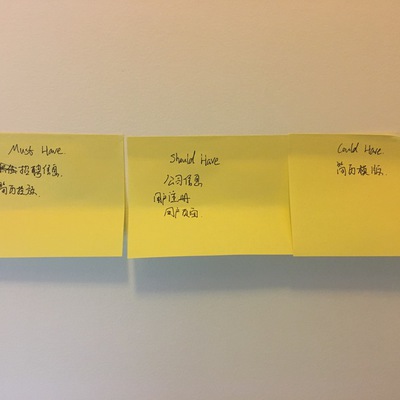 Must Have.
招聘信息.
简历投放.
Should Have
公司信息
用户注册
用户反馈
Could Have.
简历模版.